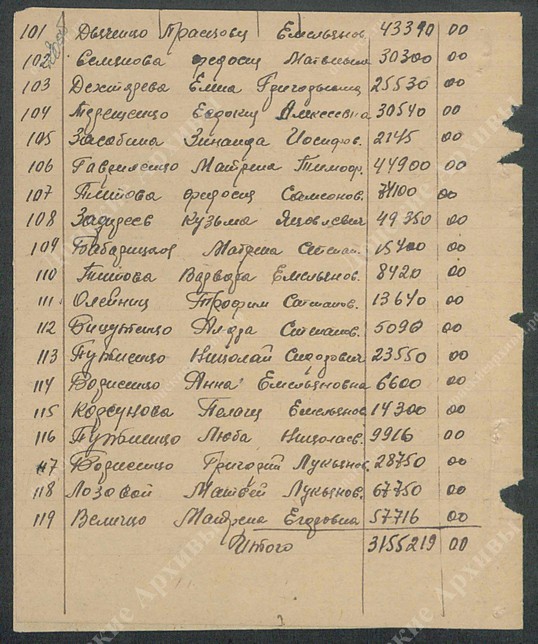 101 Дьяченко Прасковь Емельянов. 43390 00
102 Семенова федосия Матвеевна 30300 00
103 Дехтярева Елена Григорьевна 25530 00
104 Терещенко Евдокия Алексеевна 30540 00
105 Засобина Зинаида Иосифов. 2145 00
106 Гавриленко Матрена Тимоф. 44900 00
107 Титова федосия Самсонов. 00
108 Кузьма Яковлевич 49350 00
109 Матрена Степан. 15400 00
110 Титова Варвара Емельянов. 8420 00
111 Олейник Трофим Степанов. 13640 00
112 Степанов. 5096 00
113 Николай 23550 00
114 Борисенко Анна Емельяновна 6600 00
115 Корсунова Пелагея Емельянов 14300 00
116 Люба Николаев. 9916 00
117 Борисенко Григорий Лукьянов. 28750 00
118 Лозовой Матвей Лукьянов. 67750 00
119 Величко Матрена Егоровна 57716 00
Итого 3155219 00